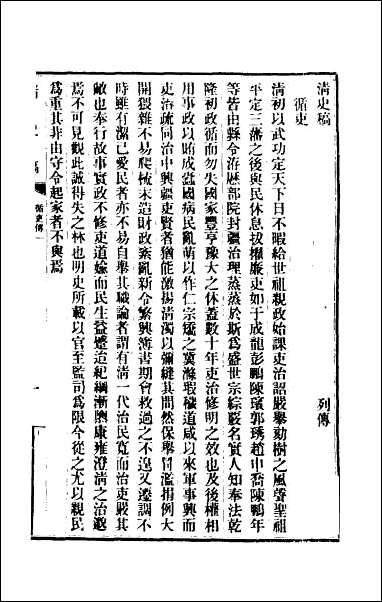 清史稿
列傳
循吏
清初以武功定天下日不暇給世祖親政始課吏治詔嚴舉劾樹之風聲聖祖
平定三藩之後與民休息拔擢廉吏如于成龍彭鵬陳璸郭琇趙申喬陳鵬年
等皆由縣令洊歷部院封疆治理蒸蒸於斯爲盛世宗綜覈名實人知奉法乾
隆初政循而勿失國家豐亨豫大之休蓋數十年吏治修明之效也及後權相
用事政以賄成蠹國病民亂萌以作仁宗矯之冀滌瑕穢道咸以來軍事興而
吏治疏同治中興疆吏賢者猶能激揚清濁以彌縫其間然保舉冒濫捐例大
開猥雜不易爬梳末造財政紊亂新令繁興簿書期會救過之不遑又遷調不
時雖有潔己愛民者亦不易自舉其職論者謂有清一代治民寬而治吏嚴其
敝也奉行故事實政不修吏道媮而民生益蹙迨紀綱漸隳康雍澄清之治邈
焉不可見觀此誠得失之林也明史所載以官至監司爲限今從之尤以親民
爲重其非由守令起家者不與焉
循吏傳一
一